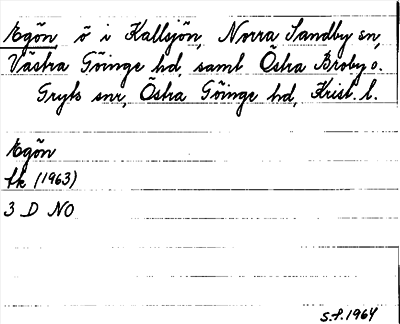 Egön, ö i Kallsjön, Norra Sandby sn,
Västra Göinge hd, samt Östra Broby o.
Gryts snr, Östra Göinge hd, Krist. l.
Egön
fk (1963)
3 D NO
s.f. 1964